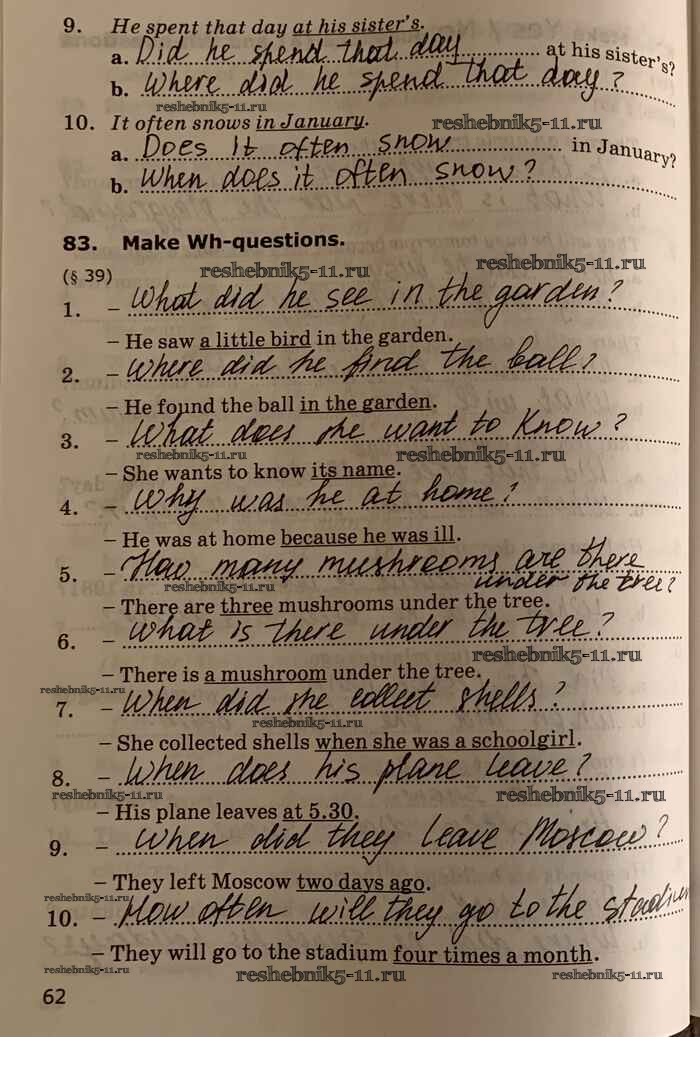 9. He spent that day at his sister's.
a. Did he spend that day at his sister's?
b. Where did he spend that day?
reshebnik5-11.ru
10. It often snows in January. reshebnik5-11.ru
a. Does it often snow in January?
b. When does it often snow?
83. Make Wh-questions.
(§ 39) reshebnik5-11.ru reshebnik5-11.ru
1. – What did he see in the garden?
– He saw a little bird in the garden.
2. – Where did he find the ball?
– He found the ball in the garden.
3. – What does she want to know?
reshebnik5-11.ru reshebnik5-11.ru
– She wants to know its name.
4. – Why was he at home?
– He was at home because he was ill.
5. – How many mushrooms are there
under the tree?
reshebnik5-11.ru
– There are three mushrooms under the tree.
6. – What is there under the tree?
reshebnik5-11.ru
– There is a mushroom under the tree.
reshebnik5-11.ru
7. – When did she collect shells?
reshebnik5-11.ru
– She collected shells when she was a schoolgirl.
8. – When does his plane leave?
reshebnik5-11.ru reshebnik5-11.ru
– His plane leaves at 5.30.
9. – When did they leave Moscow?
– They left Moscow two days ago.
reshebnik5-11.ru
10. – How often will they go to the stadium
– They will go to the stadium four times a month.
reshebnik5-11.ru reshebnik5-11.ru reshebnik5-11.ru
62